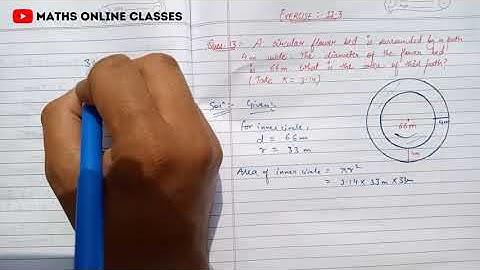 MATHS ONLINE CLASSES
EXERCISE :- 11.3
Ques. 13 :- A circular flower bed is surrounded by a path
4m wide. The diameter of the flower bed
is 66m what is the area of this path?
(Take π = 3.14)
Sol :- Given :-
For inner circle,
d = 66m
r = 33 m
Area of inner circle = πr²
= 3.14 × 33m × 33m
66m
4m
4m